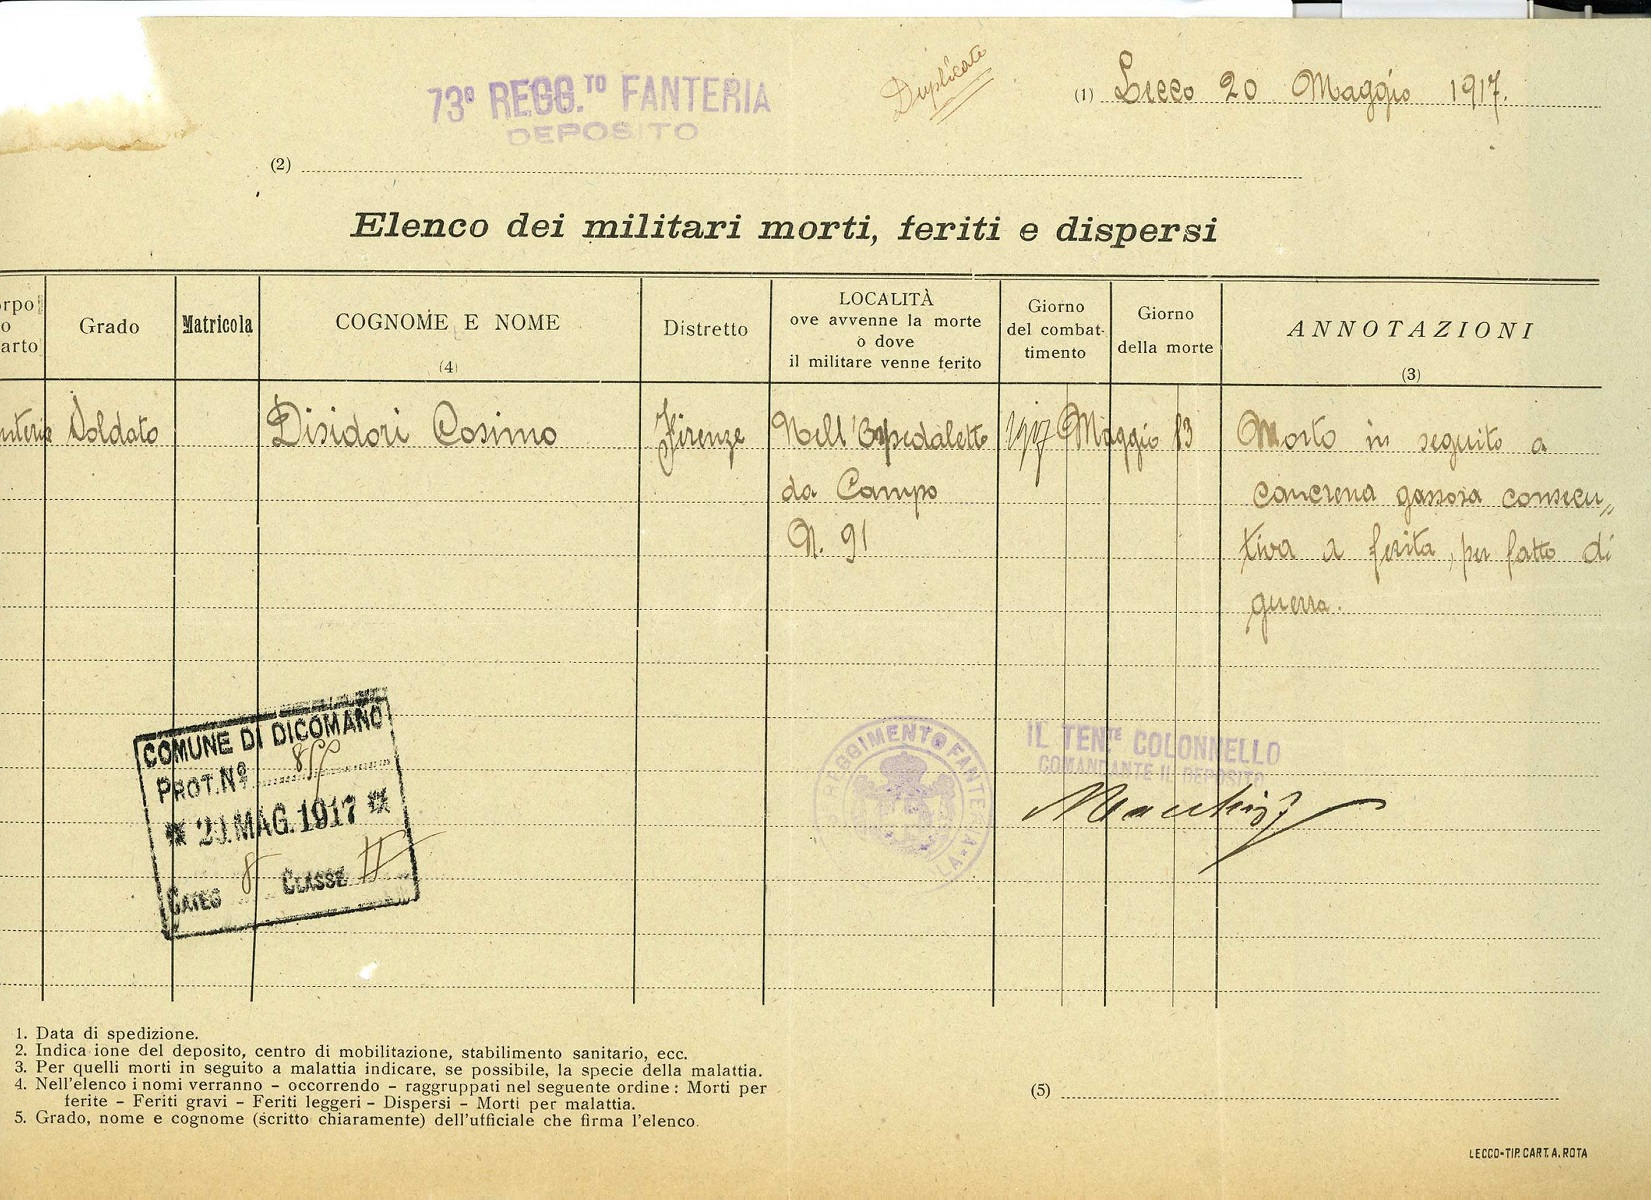 73º REGG.TO FANTERIA
DEPOSITO
Duplicato
(1) Lecco 20 Maggio 1917.
(2)
Elenco dei militari morti, feriti e dispersi
Grado
Matricola
COGNOME E NOME
(4)
Distretto
LOCALITÀ
ove avvenne la morte
o dove
il militare venne ferito
Giorno
del combat-
timento
Giorno
della morte
ANNOTAZIONI
(3)
Soldato
Disidori Cosimo
Firenze
Nell'Ospedaletto
da Campo
N. 91
1917 Maggio 13
Morto in seguito a
cancrena gassosa consecu„
tiva a ferita, per fatto di
guerra.
COMUNE DI DICOMANO
PROT. Nº
* 29. MAG. 1917 *
CATEG 8 CLASSE II
REGGIMENTO FANTERIA
IL TENTE COLONNELLO
COMANDANTE IL DEPOSITO
1. Data di spedizione.
2. Indica ione del deposito, centro di mobilitazione, stabilimento sanitario, ecc.
3. Per quelli morti in seguito a malattia indicare, se possibile, la specie della malattia.
4. Nell'elenco i nomi verranno – occorrendo – raggruppati nel seguente ordine: Morti per
ferite – Feriti gravi – Feriti leggeri – Dispersi – Morti per malattia.
5. Grado, nome e cognome (scritto chiaramente) dell'ufficiale che firma l'elenco.
(5)
LECCO-TIP. CART. A. ROTA